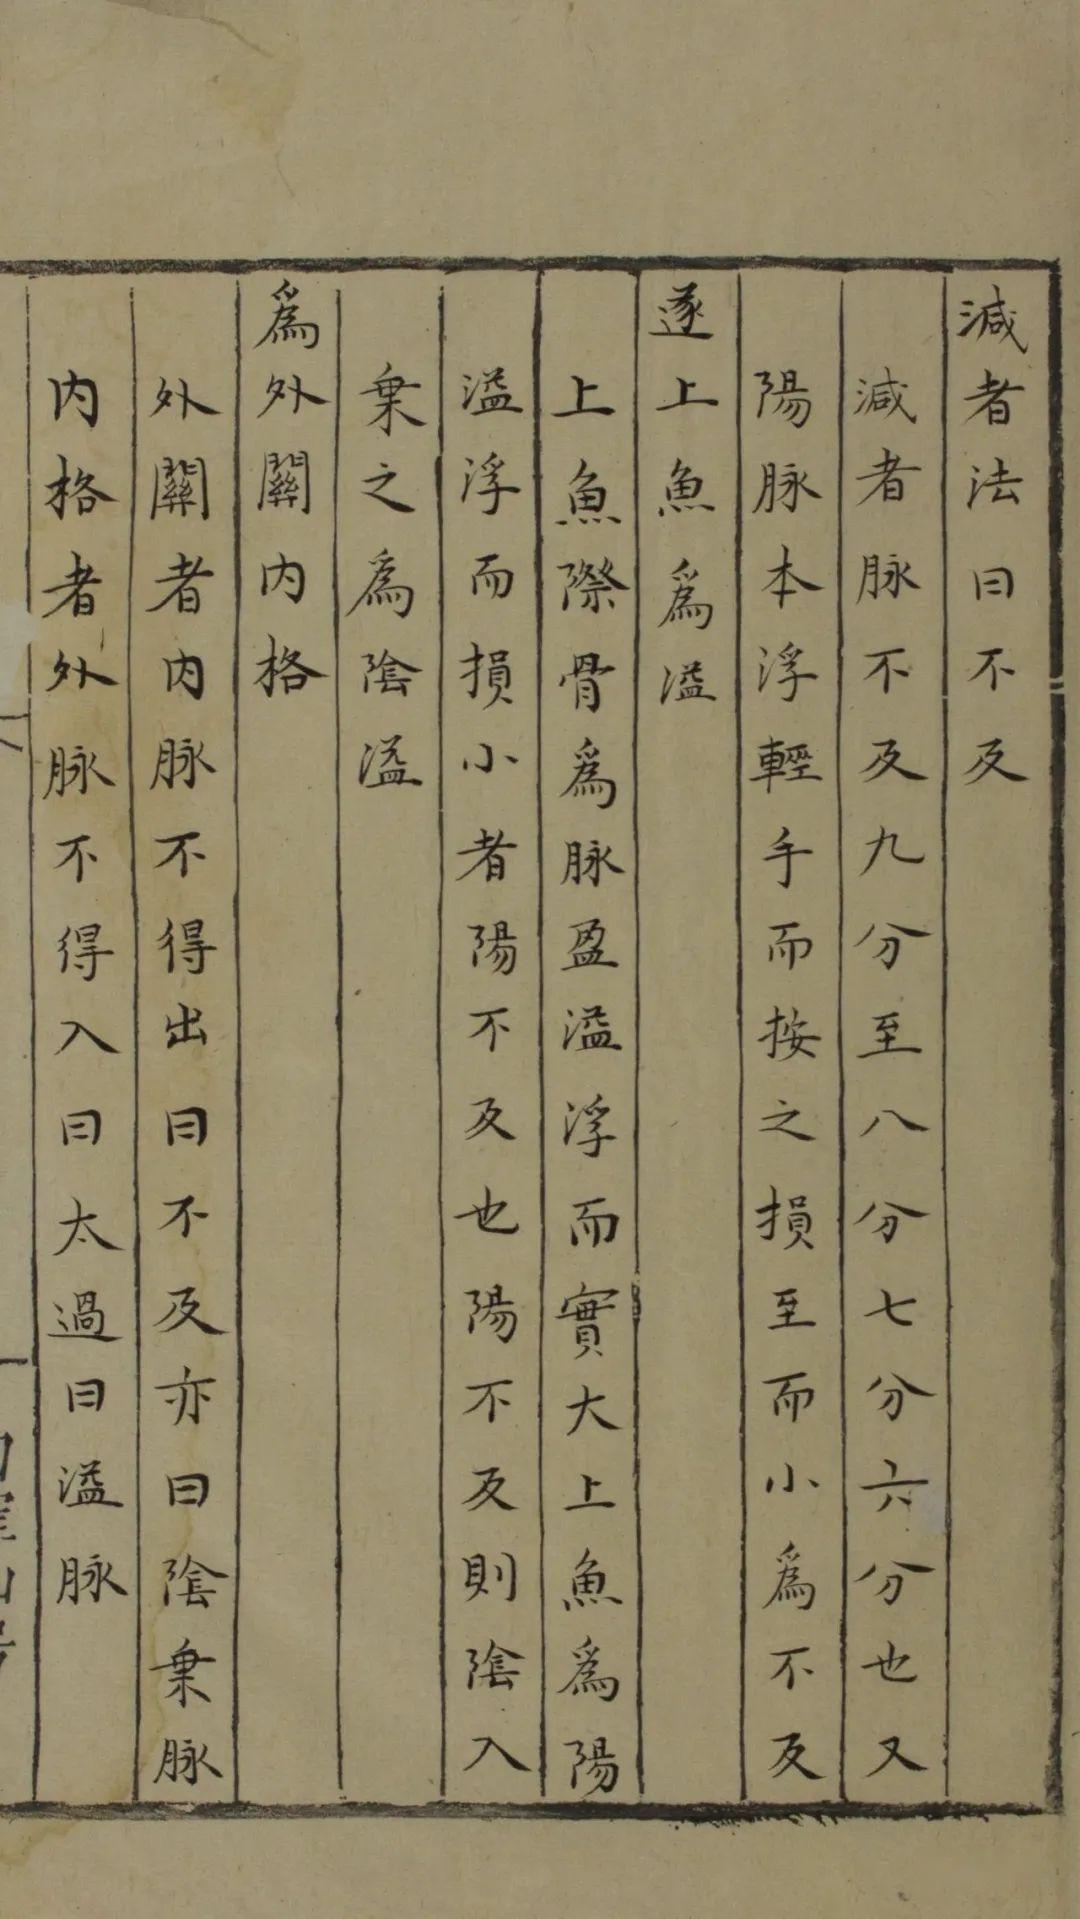 減者法曰不及
減者脉不及九分至八分七分六分也又
陽脉本浮輕手而按之損至而小爲不及
遂上魚爲溢
上魚際骨爲脉盈溢浮而實大上魚爲陽
溢浮而損小者陽不及也陽不及則陰入
乗之爲陰溢
爲外關内格
外關者内脉不得出曰不及亦曰陰乗脉
内格者外脉不得入曰太過曰溢脉